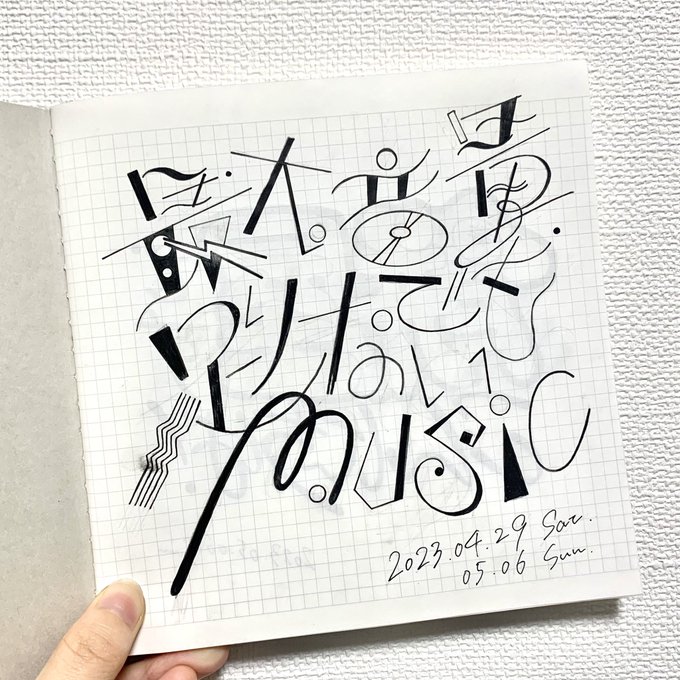 最大音量
でも
足りない
MUSIC
2023.04.29 Sat.
05.06 Sun.